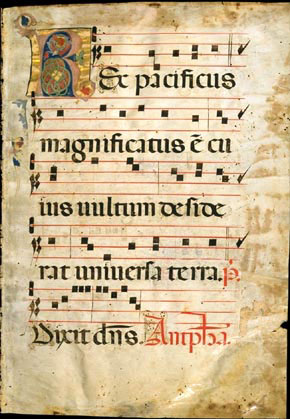 Rex pacificus
magnificatus ẽ cu
ius uultum deside
rat universa terra. p̄.
Dixit dñs. Antpha.